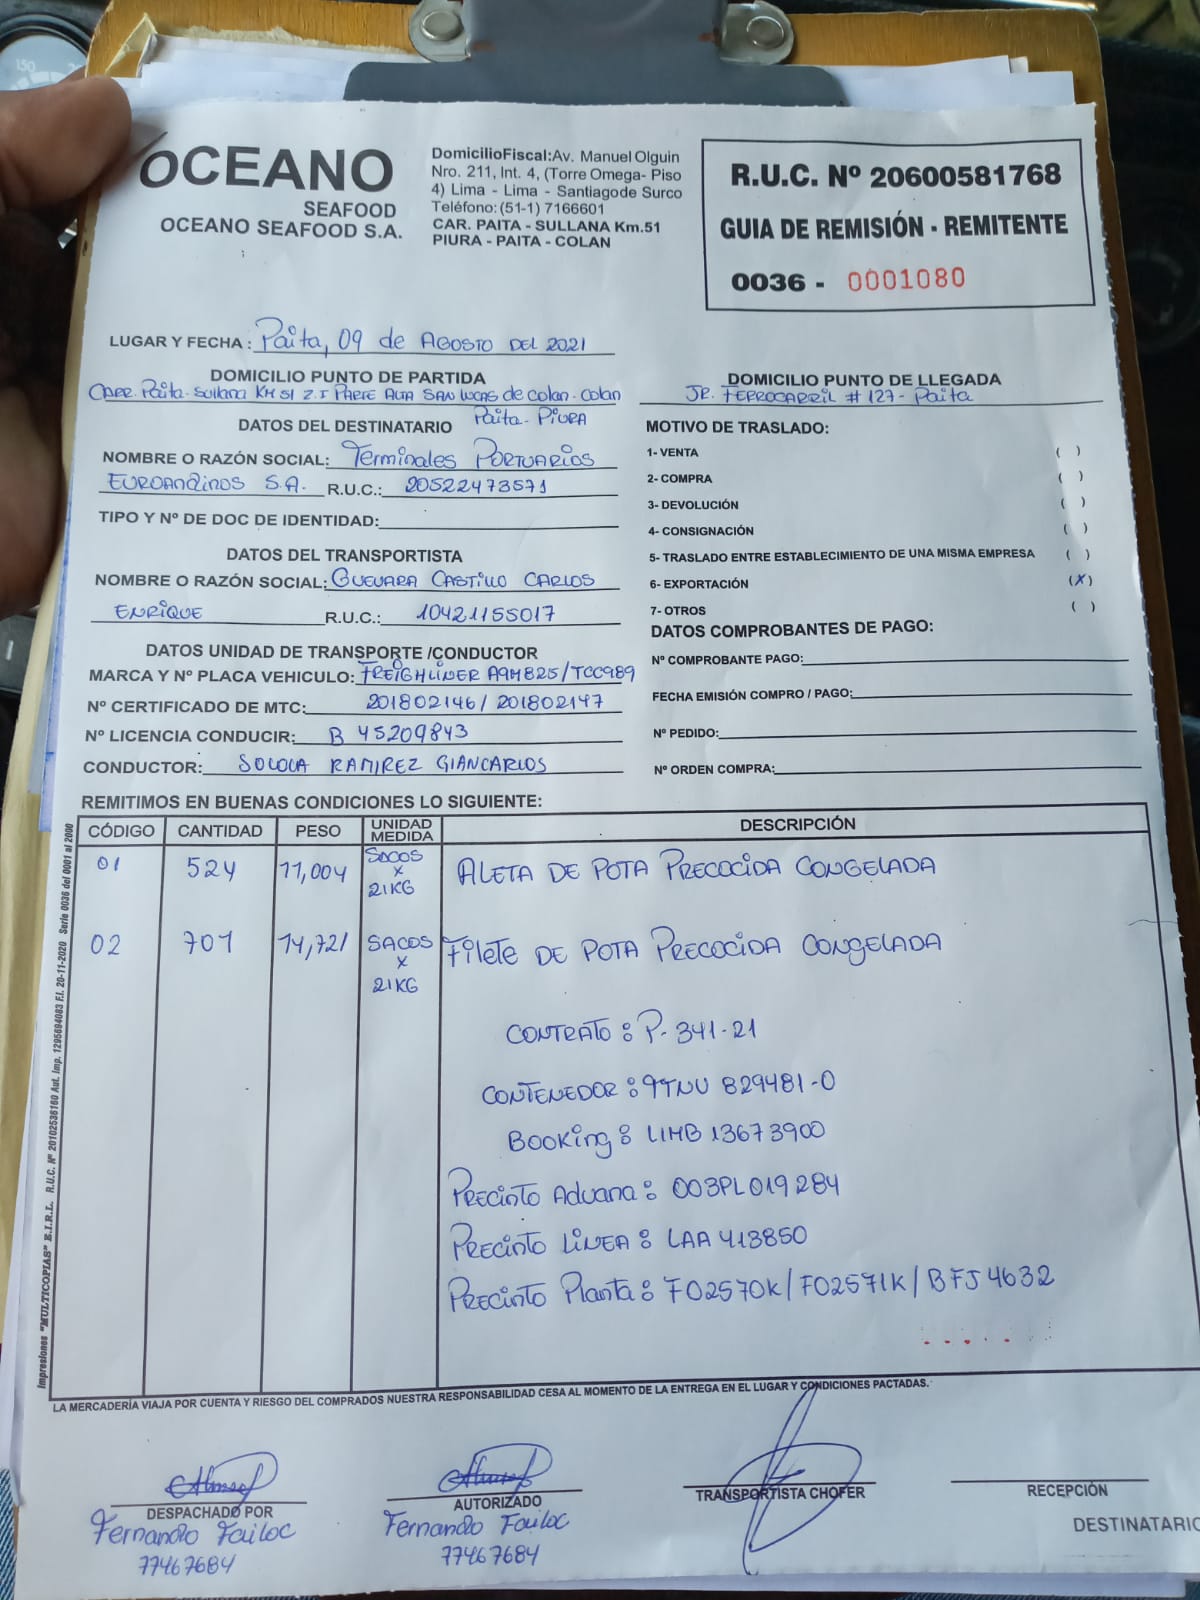 OCEANO
SEAFOOD
OCEANO SEAFOOD S.A.
DomicilioFiscal:Av. Manuel Olguin
Nro. 211, Int. 4, (Torre Omega- Piso
4) Lima - Lima - Santiagode Surco
Teléfono: (51-1) 7166601
CAR. PAITA - SULLANA Km.51
PIURA - PAITA - COLAN
R.U.C. Nº 20600581768
GUIA DE REMISIÓN - REMITENTE
0036 - 0001080
LUGAR Y FECHA : Paita, 09 de AGOSTO DEL 2021
DOMICILIO PUNTO DE PARTIDA
Carr. Paita- Sullana KM 51 Z.I PARTE ALTA SAN LUCAS de Colan- Colan
Paita- PIURA
DOMICILIO PUNTO DE LLEGADA
JR. FERROCARRIL # 127- Paita
DATOS DEL DESTINATARIO
NOMBRE O RAZÓN SOCIAL: Terminales PORTUARIOS
EUROANDINOS S.A. R.U.C.: 20522473571
TIPO Y Nº DE DOC DE IDENTIDAD:
DATOS DEL TRANSPORTISTA
NOMBRE O RAZÓN SOCIAL: GUEVARA CASTILLO CARLOS
ENRIQUE R.U.C.: 10421155017
DATOS UNIDAD DE TRANSPORTE /CONDUCTOR
MARCA Y Nº PLACA VEHICULO: FREIGHLINER A9M825/TCC989
Nº CERTIFICADO DE MTC: 201802146/ 201802147
Nº LICENCIA CONDUCIR: B 45209843
CONDUCTOR: RAMIREZ GIANCARLOS
MOTIVO DE TRASLADO:
1- VENTA ( )
2- COMPRA ( )
3- DEVOLUCIÓN ( )
4- CONSIGNACIÓN ( )
5- TRASLADO ENTRE ESTABLECIMIENTO DE UNA MISMA EMPRESA ( )
6- EXPORTACIÓN (X)
7- OTROS ( )
DATOS COMPROBANTES DE PAGO:
Nº COMPROBANTE PAGO:
FECHA EMISIÓN COMPRO / PAGO:
Nº PEDIDO:
Nº ORDEN COMPRA:
REMITIMOS EN BUENAS CONDICIONES LO SIGUIENTE:
CÓDIGO CANTIDAD PESO UNIDAD MEDIDA DESCRIPCIÓN
01 524 11,004 SACOS x 21KG ALETA DE POTA PRECOCIDA CONGELADA
02 701 14,721 SACOS x 21KG Filete DE POTA PRECOCIDA CONGELADA
CONTRATO : P- 341-21
CONTENEDOR : TTNU 829481-0
Booking : LIMB 13673900
Precinto Aduana : 003PL019284
Precinto LINEA : LAA 413850
Precinto Planta : F02570K/F02571K/BFJ4632
Impresiones "MULTICOPIAS" E.I.R.L. R.U.C. Nº 20102536160 Aut. Imp. 1295694083 F.I. 20-11-2020 Serie 0036 del 0001 al 2000
LA MERCADERÍA VIAJA POR CUENTA Y RIESGO DEL COMPRADOS NUESTRA RESPONSABILIDAD CESA AL MOMENTO DE LA ENTREGA EN EL LUGAR Y CONDICIONES PACTADAS.
DESPACHADO POR
Fernando Failoc
77467684
AUTORIZADO
Fernando Failoc
77467684
TRANSPORTISTA CHOFER
RECEPCIÓN
DESTINATARIO